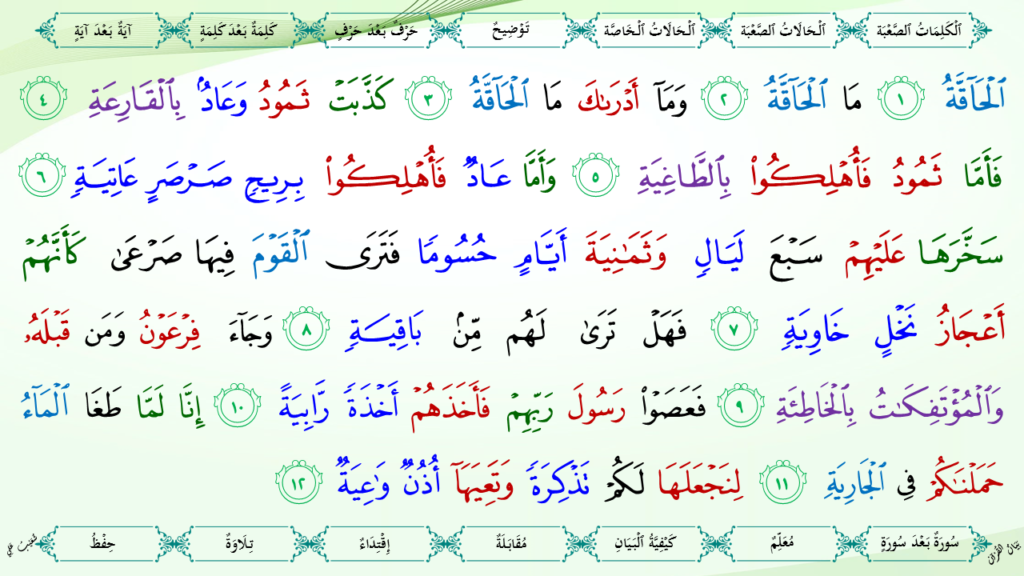 اَلْكَلِمَاتُ الصَّعْبَةُ
اَلْحَالَاتُ الصَّعْبَةُ
اَلْحَالَاتُ الْخَاصَّةُ
تَوْضِيحٌ
حَرْفٌ بَعْدَ حَرْفٍ
كَلِمَةٌ بَعْدَ كَلِمَةٍ
آيَةٌ بَعْدَ آيَةٍ
ٱلْحَآقَّةُ ١ مَا ٱلْحَآقَّةُ ٢ وَمَآ أَدْرَىٰكَ مَا ٱلْحَآقَّةُ ٣ كَذَّبَتْ ثَمُودُ وَعَادُۢ بِٱلْقَارِعَةِ ٤
فَأَمَّا ثَمُودُ فَأُهْلِكُوا۟ بِٱلطَّاغِيَةِ ٥ وَأَمَّا عَادٌ فَأُهْلِكُوا۟ بِرِيحٍ صَرْصَرٍ عَاتِيَةٍ ٦
سَخَّرَهَا عَلَيْهِمْ سَبْعَ لَيَالٍ وَثَمَـٰنِيَةَ أَيَّامٍ حُسُومًا فَتَرَى ٱلْقَوْمَ فِيهَا صَرْعَىٰ كَأَنَّهُمْ
أَعْجَازُ نَخْلٍ خَاوِيَةٍ ٧ فَهَلْ تَرَىٰ لَهُم مِّنۢ بَاقِيَةٍ ٨ وَجَآءَ فِرْعَوْنُ وَمَن قَبْلَهُۥ
وَٱلْمُؤْتَفِكَـٰتُ بِٱلْخَاطِئَةِ ٩ فَعَصَوْا۟ رَسُولَ رَبِّهِمْ فَأَخَذَهُمْ أَخْذَةً رَّابِيَةً ١٠ إِنَّا لَمَّا طَغَا ٱلْمَآءُ
حَمَلْنَـٰكُمْ فِى ٱلْجَارِيَةِ ١١ لِنَجْعَلَهَا لَكُمْ تَذْكِرَةً وَتَعِيَهَآ أُذُنٌ وَٰعِيَةٌ ١٢
سُورَةٌ بَعْدَ سُورَةٍ
مُعَلِّمٌ
كَيْفِيَّةُ الْبَيَانِ
مُقَابَلَةٌ
إِقْتِدَاءٌ
تِلَاوَةٌ
حِفْظٌ